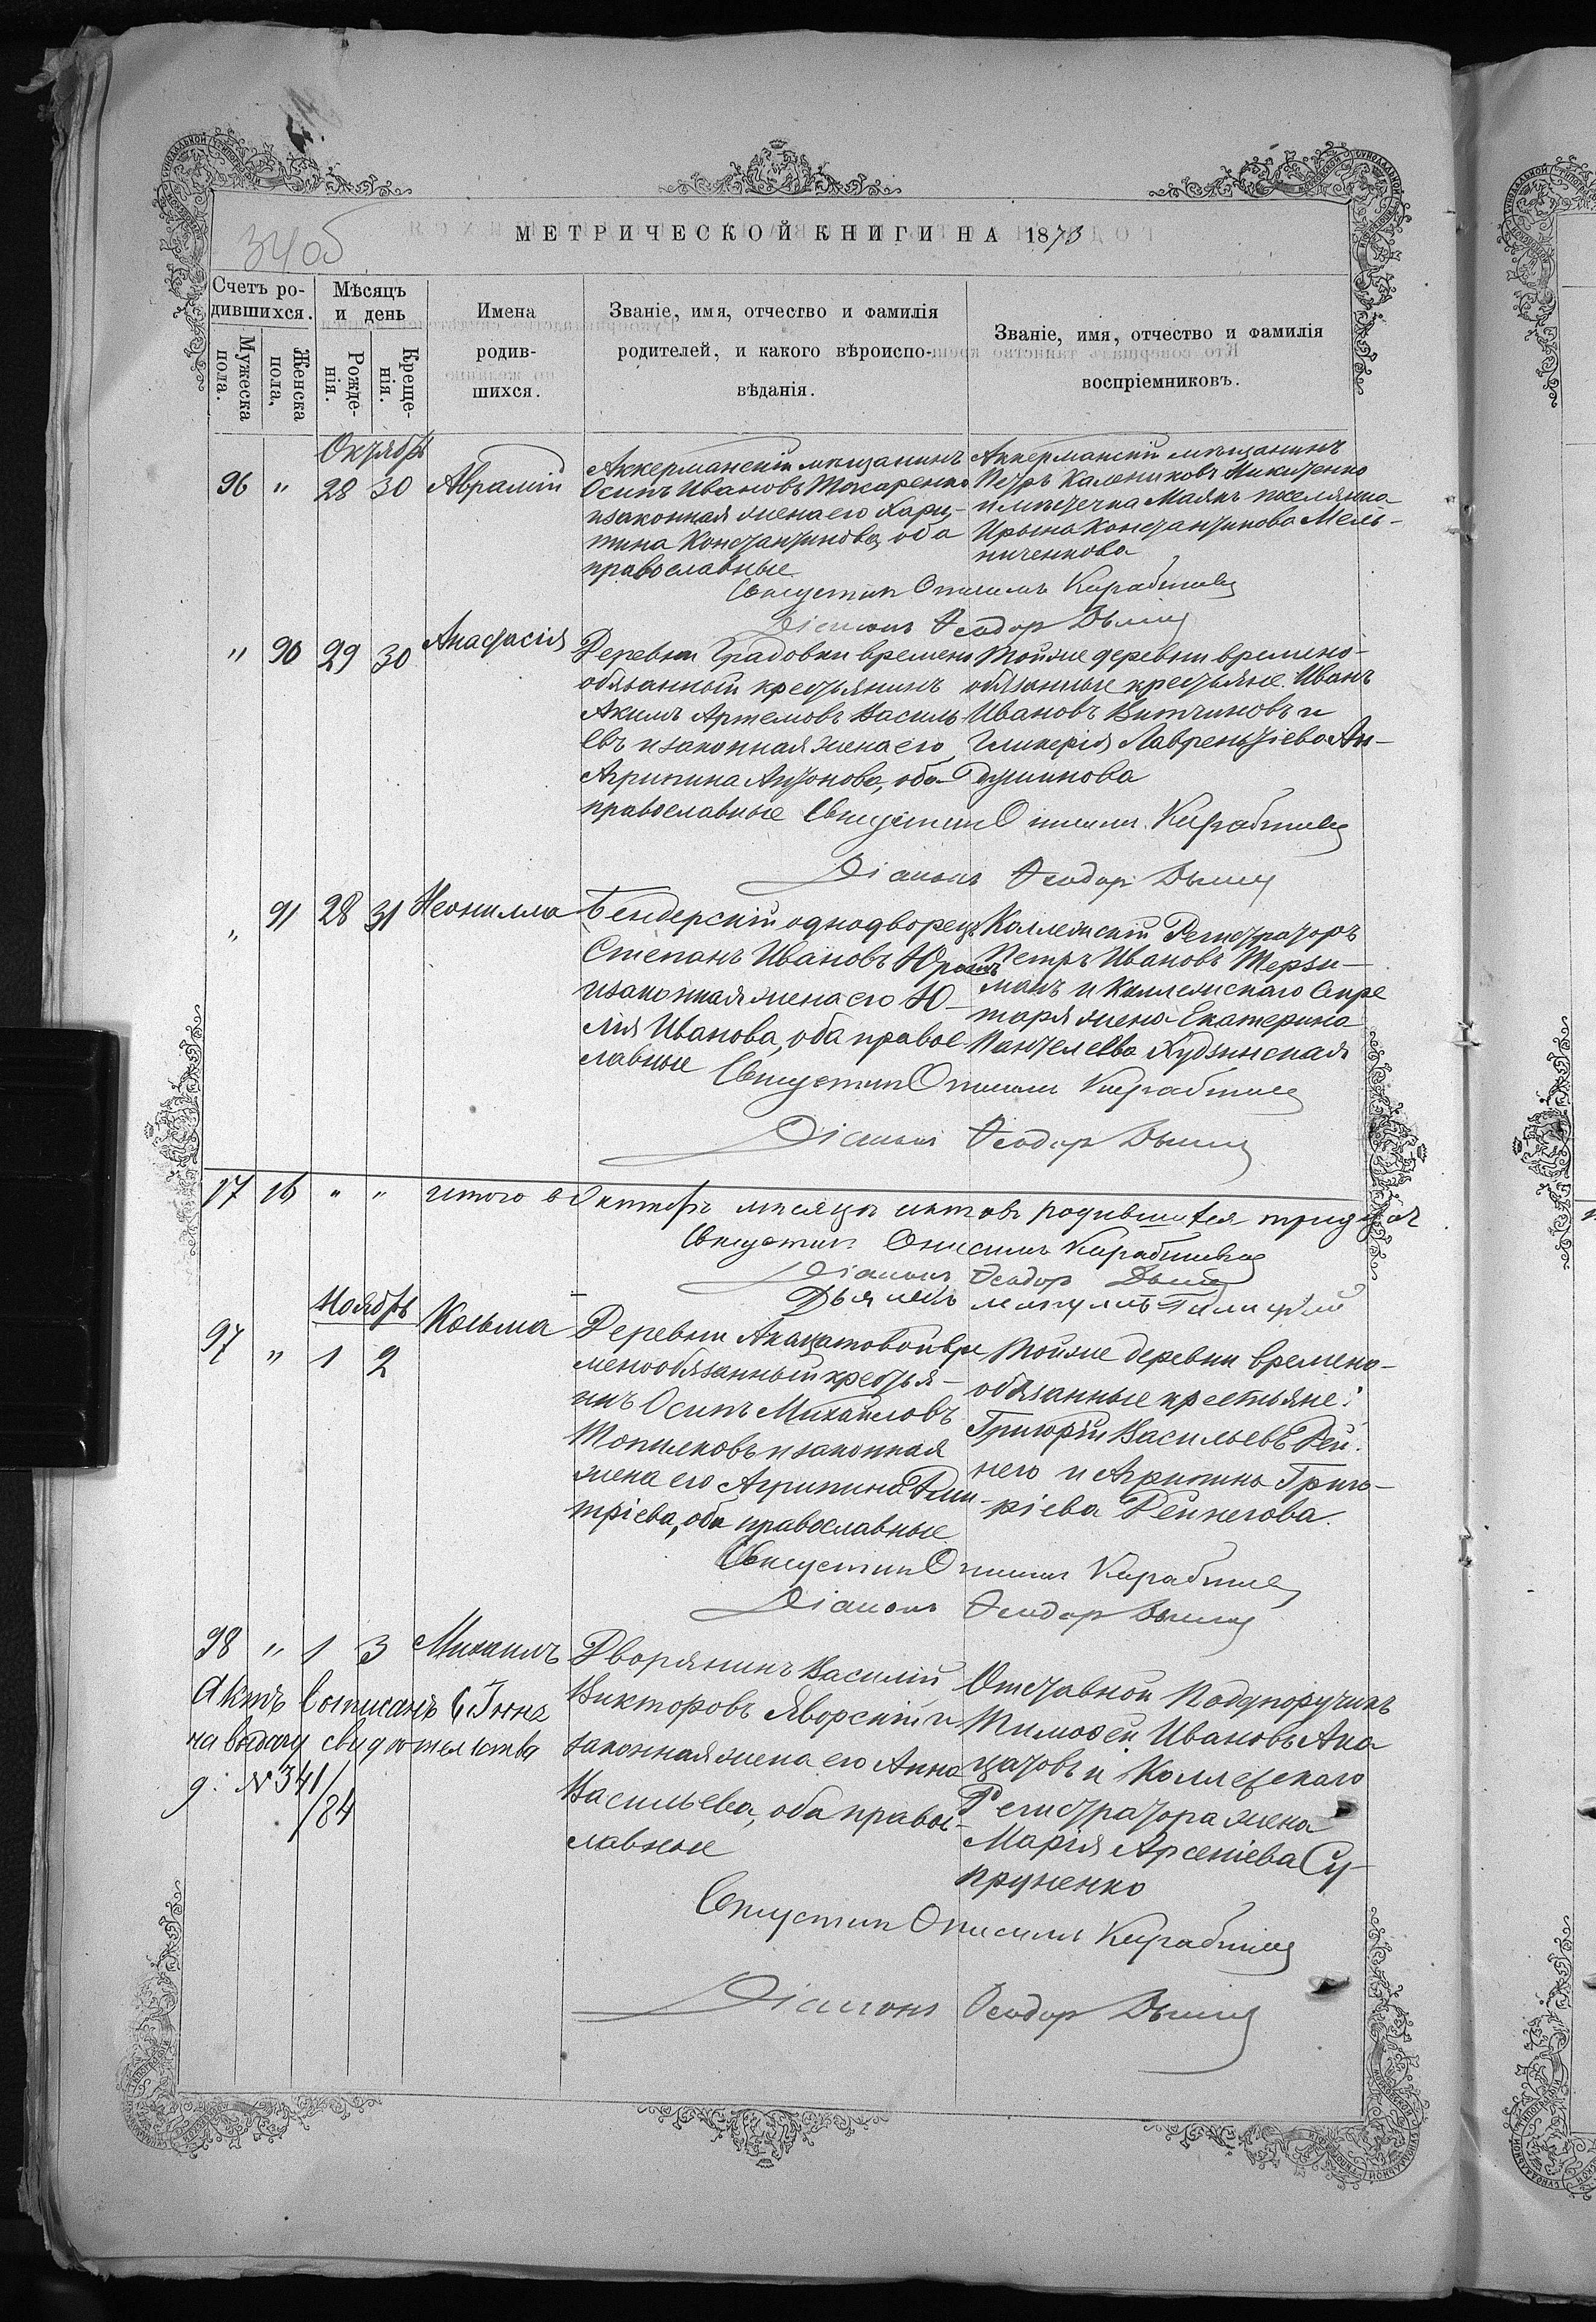 34об
МЕТРИЧЕСКОЙ КНИГИ НА 1873
Счетъ ро-
дившихся.
Мужеска
пола.
Женска
пола,
Мѣсяцъ
и день
Рожде-
нія.
Креще-
нія.
Имена
родив-
шихся.
Званіе, имя, отчество и фамилія
родителей, и какого вѣроиспо-
вѣданія.
Званіе, имя, отчество и фамилія
воспріемниковъ.
Октябрь
96 " 28 30 Аврамій
Аккерманскій мѣщанинъ
Осипъ Ивановъ Токаренко
и законная жена его Хари-
тина Константинова, оба
православные
Аккерманскій мѣщанинъ
Петръ Калениковъ Никитенко
и мѣстечка Маякъ поселянка
Ирина Константинова Мель-
ниченкова
Священникъ Онисимъ
Діаконъ Ѳеодоръ
" 90 29 30 Анастасія
Деревни Градовки времено
обязанный крестьянинъ
Акимъ Артемовъ Василь-
евъ и законная жена его
Агрипина Антонова, оба
православные
Тойже деревни времено-
обязанные крестьяне Иванъ
Ивановъ и
Гликерія Лаврентіева Ан-
Священникъ Онисимъ
Діаконъ Ѳеодоръ
" 91 28 31 Неонилла
Бендерскій однодворецъ
Степанъ Ивановъ
и законная жена его Ю-
лія Иванова, оба правос-
лавные
Коллежскій Регистраторъ
Петръ Ивановъ Терзи-
манъ и Коллежскаго Секре
таря жена Екатерина
Пантелеева Кудзинская
Священникъ Онисимъ
Діаконъ Ѳеодоръ
17 16 " " итого в Октябрѣ мѣсяцѣ актовъ родившихся тридцать
Священникъ Онисимъ
Діаконъ Ѳеодоръ
Дьячекъ
Ноябрь
97 " 1 2 Косьма
Деревни Акацатовой вре
менообязанный крестья-
нинъ Осипъ Михайловъ
Топилковъ и законная
жена его Агрипина Дми-
тріева, оба православные
Тойже деревни времено-
обязанные крестьяне:
Григорій Васильевъ Рей-
него и Агрипина Григо-
ріева Рейнегова.
Священникъ Онисимъ
Діаконъ Ѳеодоръ
98 " 1 3 Михаилъ
Актъ сей писанъ 6 Іюня
на выдачу свидѣтельства
№ 341/
/84
Дворянинъ Василій
Викторовъ Яворскій и
законная жена его Анна
Васильева, оба право-
славные
Отставной Подпоручикъ
Тимоѳей Ивановъ Ака
цатовъ и Коллежскаго
Регистратора жена
Марія Арсеніева Су-
пруненко
Священникъ Онисимъ
Діаконъ Ѳеодоръ